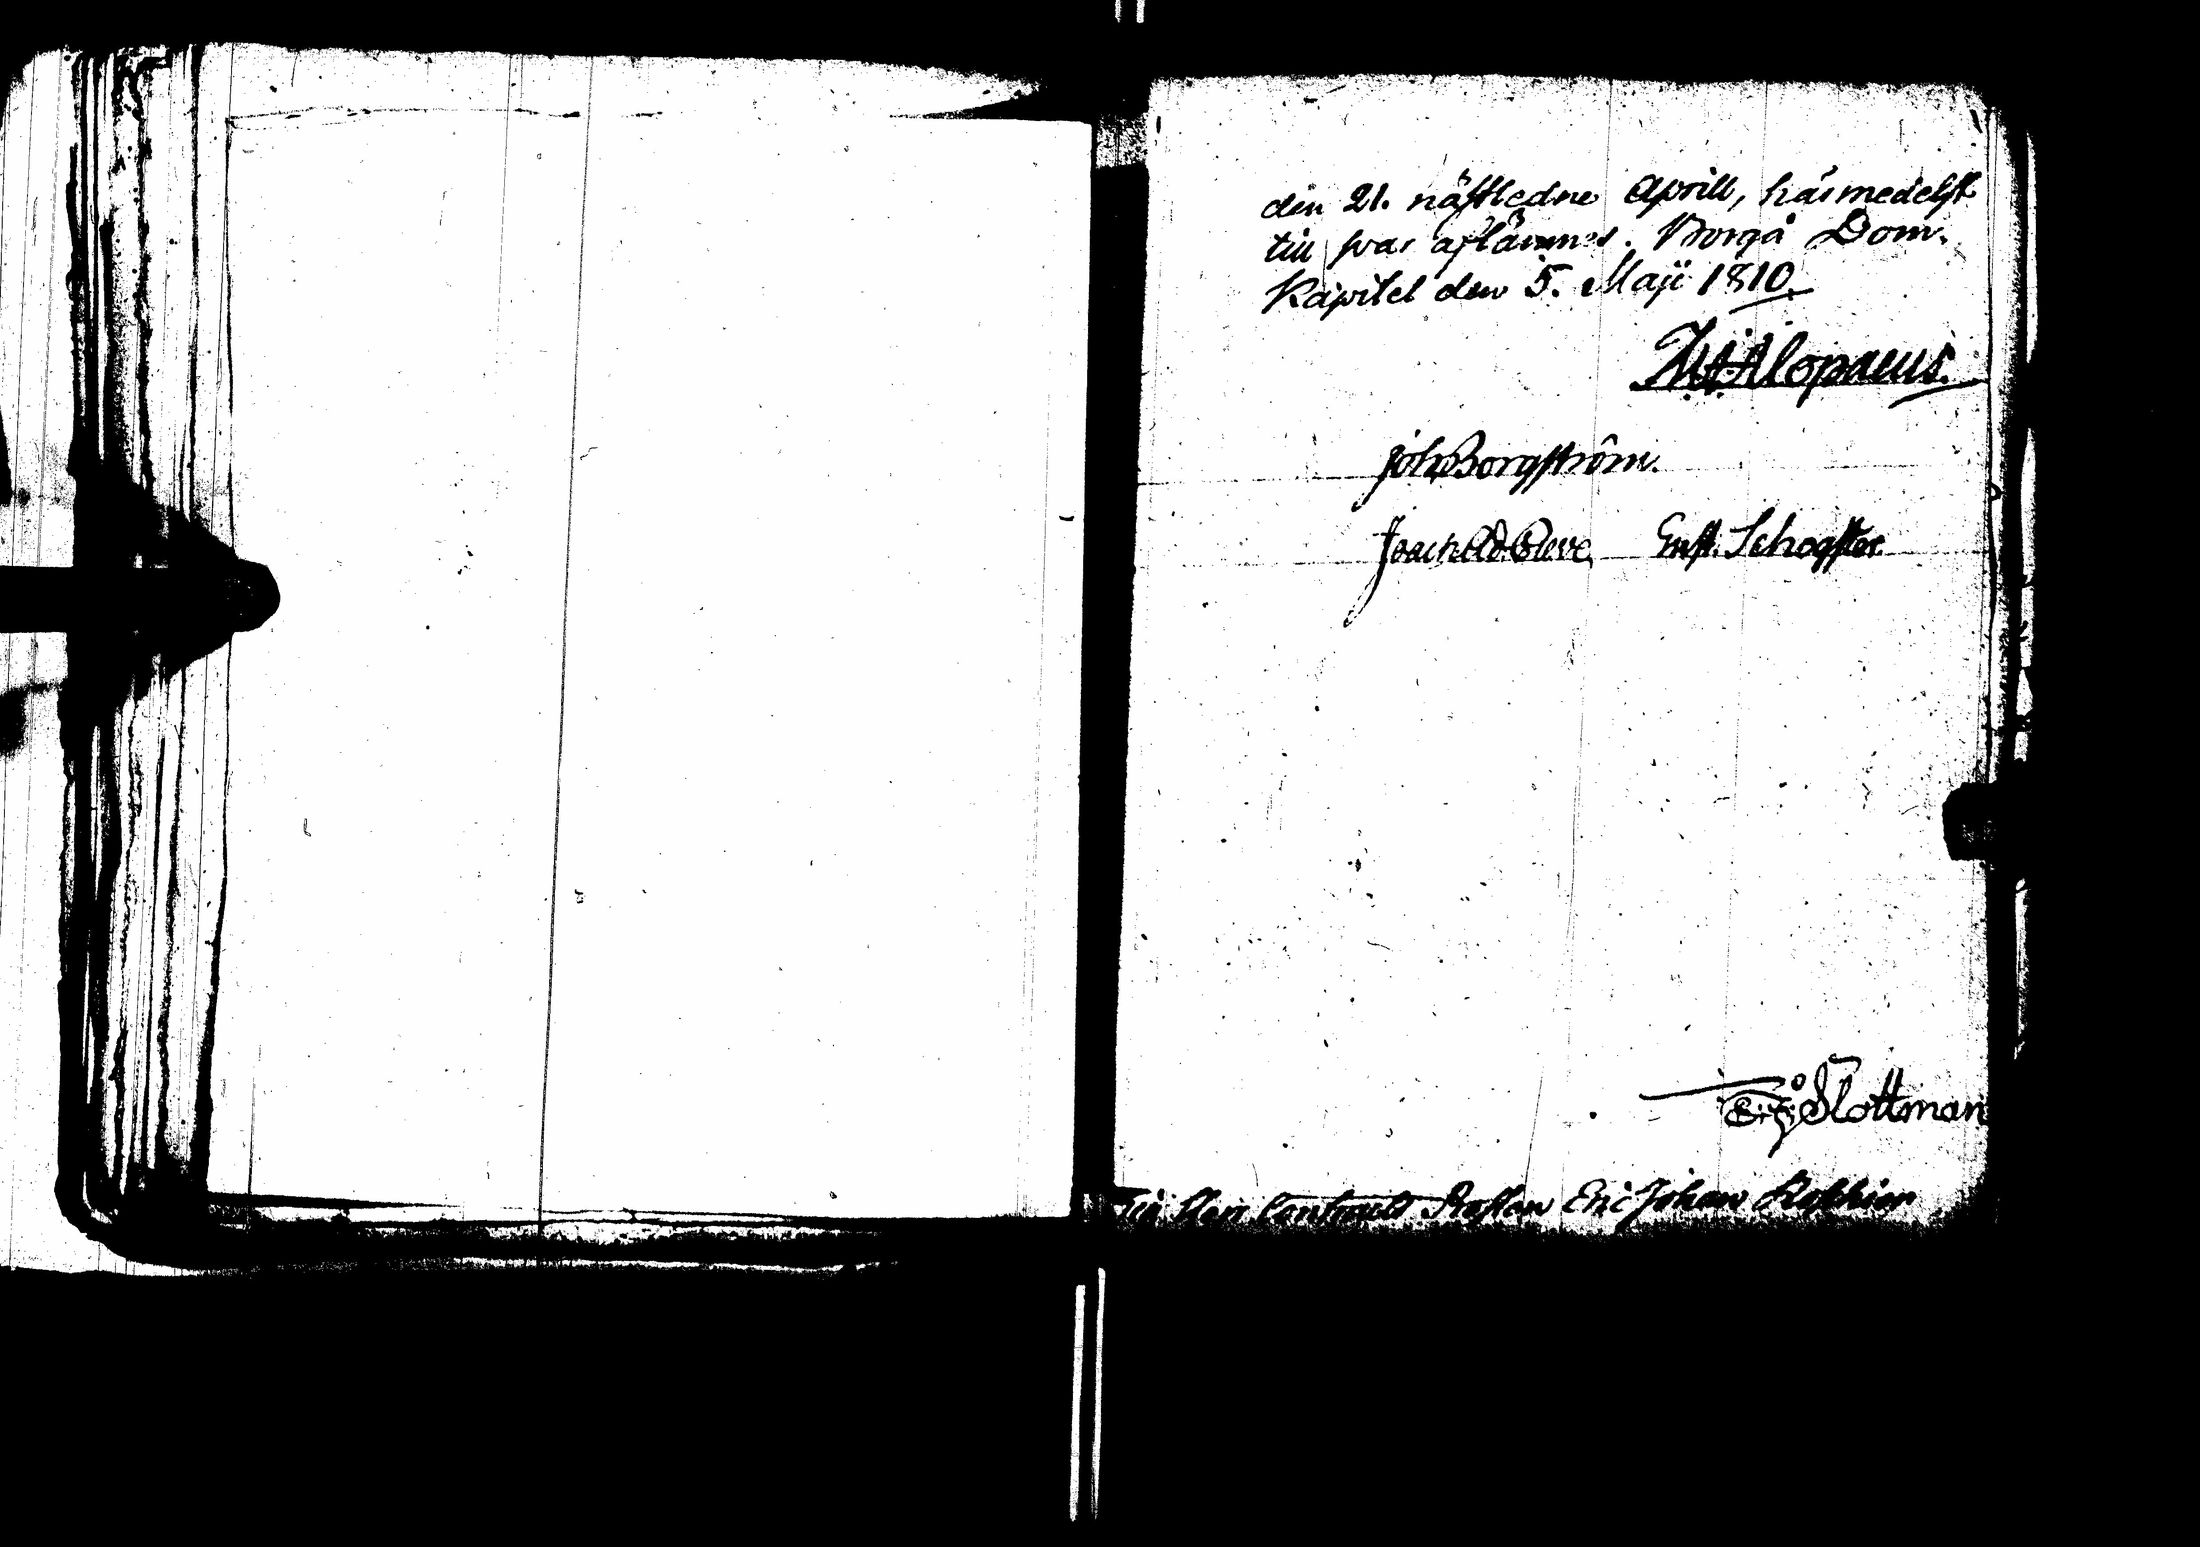 den 21. nästledne Aprill, härmedelst
till svar aflämnes. Borgå Dom-
Kapitel den 5. Maji 1810.
M: Alopaeus.
Joh Borgström.
Joach. Ad. Cleve Ernst. Schogster
Slottman
Till Contracts Prosten Eric Johan